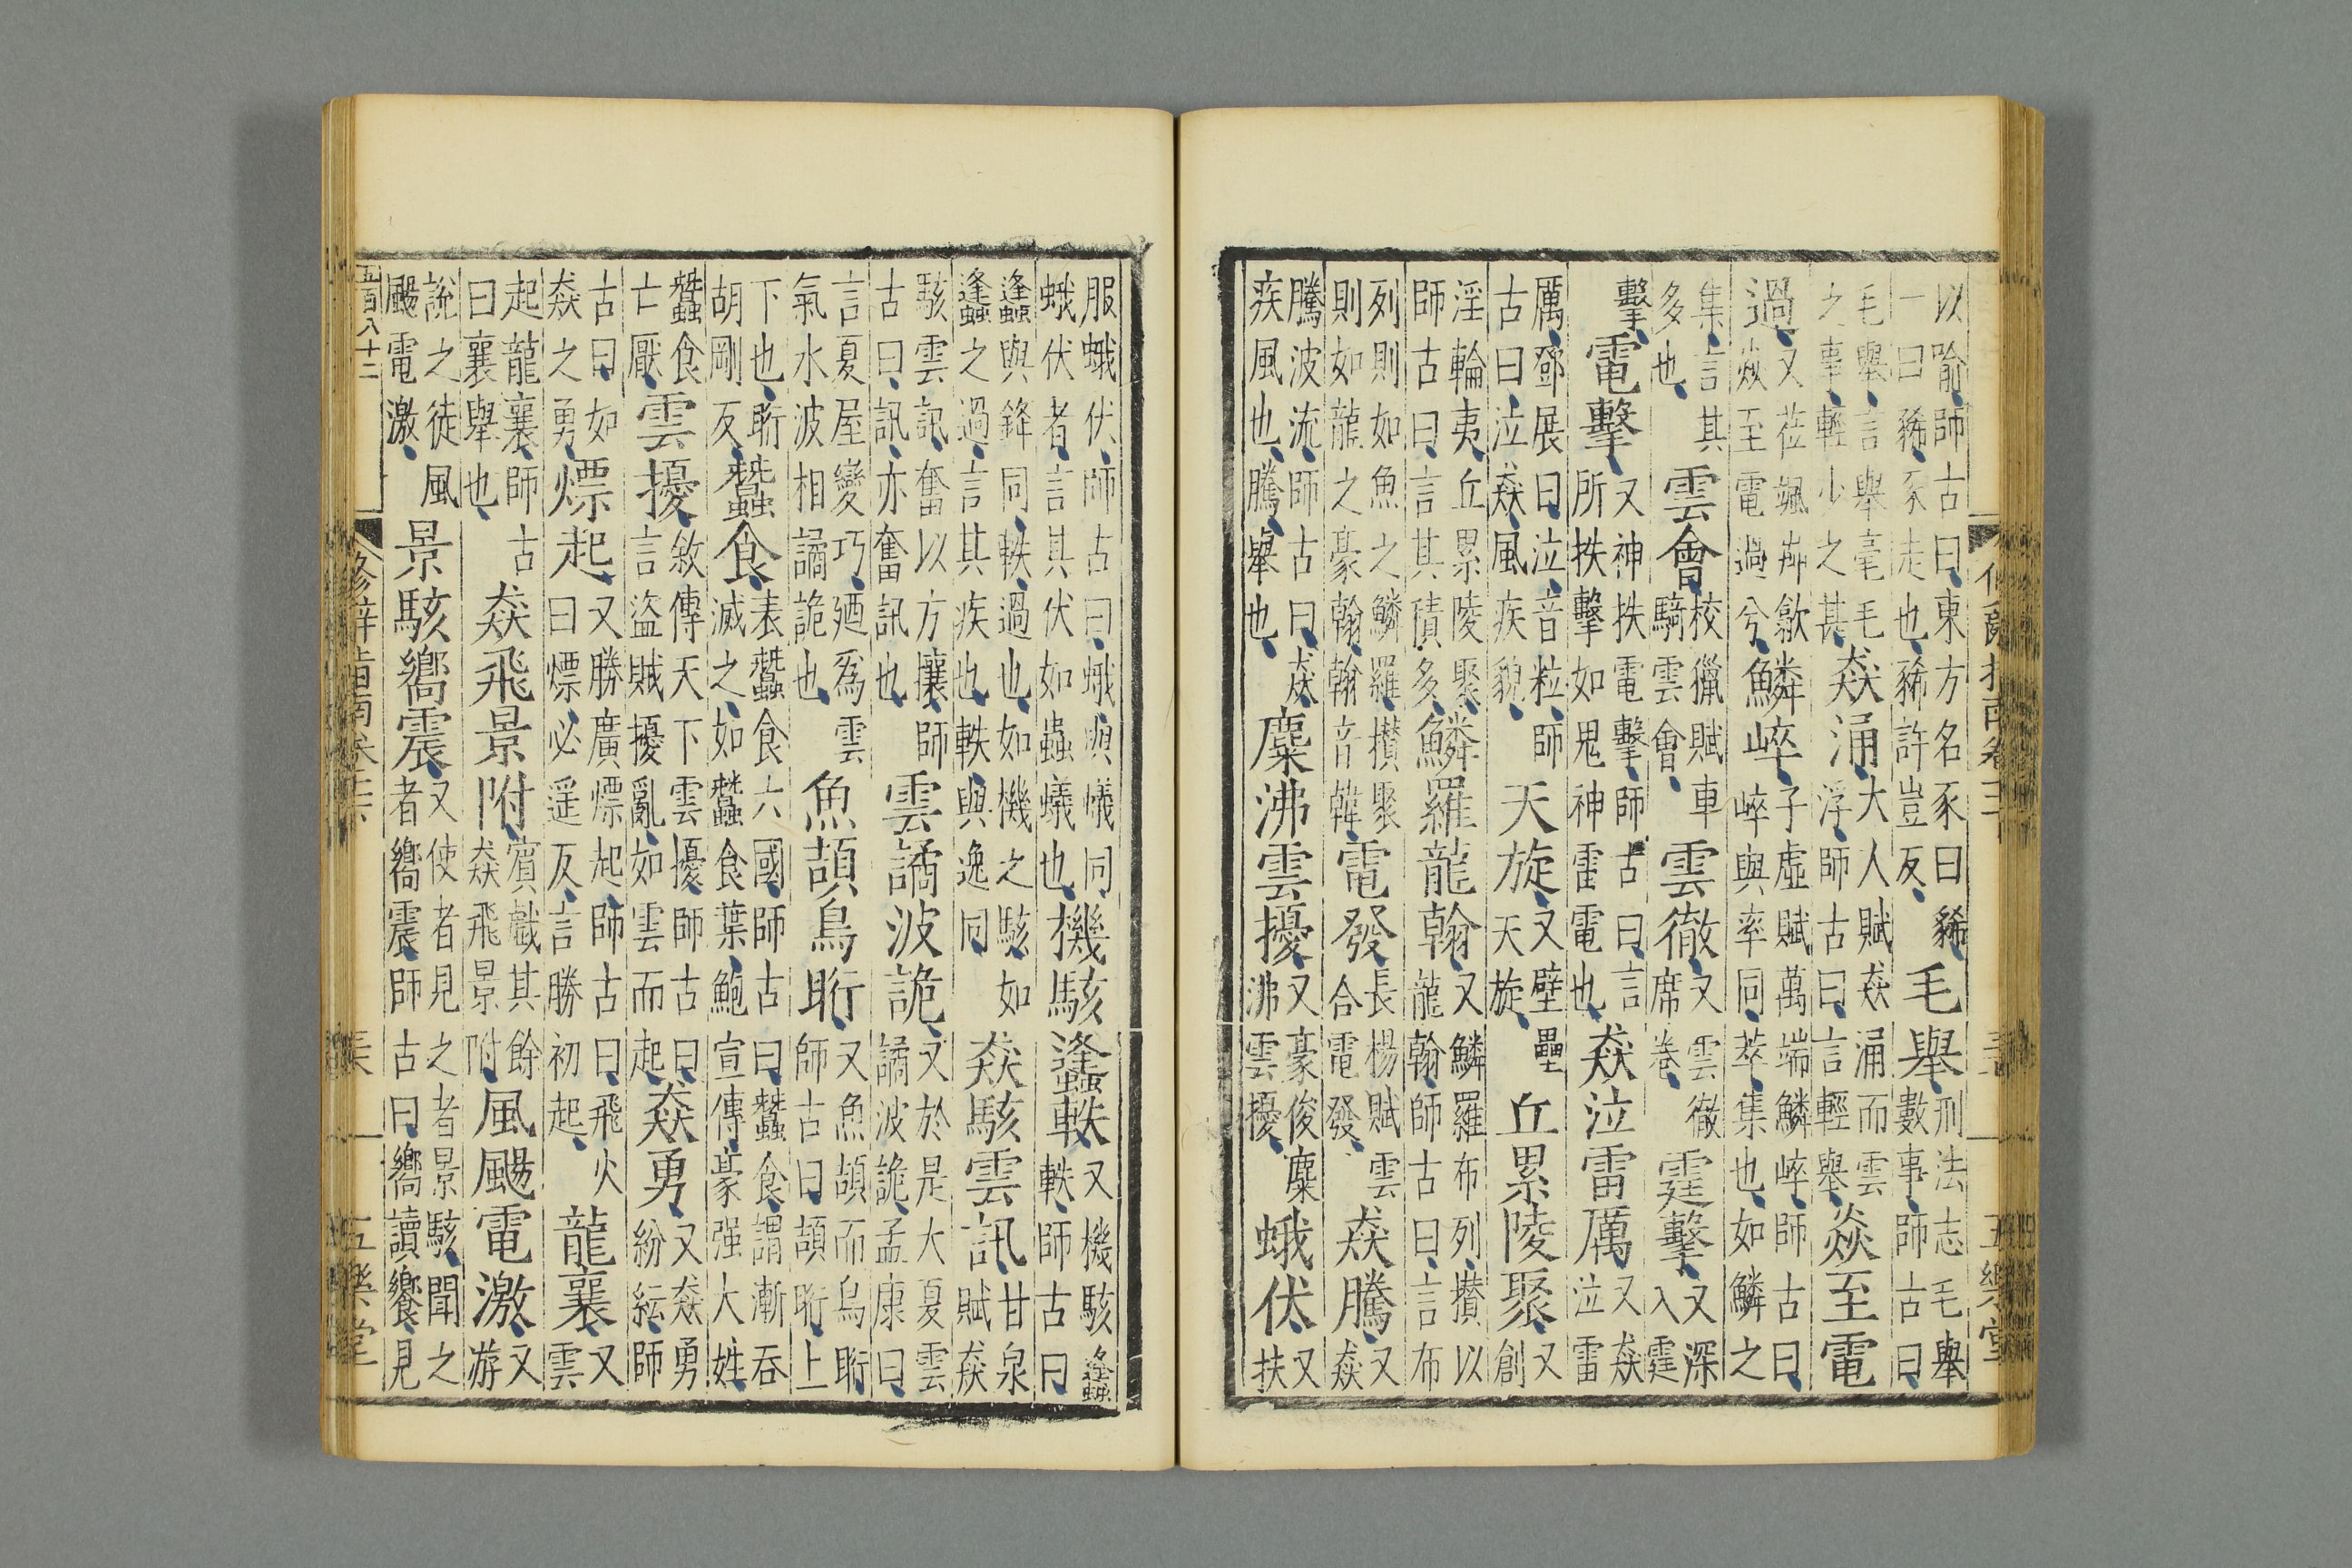 修辭指南卷二十
五樂堂
以喻、師古曰、東方名豕曰豨、一曰豨、豕走也、豨許豈反、毛舉、刑法志毛舉數事、師古曰、
毛舉、言舉毫毛之事、輕少之甚、猋涌、大人賦猋涌而雲浮、師古曰、言輕舉、焱至電
過、又莅颯卉歙焱至電過兮鱗崒、子虛賦萬端鱗崒、師古曰、崒與率同、萃、集也、如鱗之
集、言其多也、雲會、校獵賦車騎雲會、雲徹、又雲徹席卷、霆擊、又深入霆
擊、電擊、又神抶電擊、師古曰、言所抶擊如鬼神雷電也、猋泣雷厲、又猋泣雷
厲、鄧展曰、泣音粒、師古曰、泣猋風疾貌、天旋、又壁壘天旋、丘累陵聚、又創
淫輪夷丘累陵聚、師古曰、言其積多、鱗羅龍翰、又鱗羅布列、攅以龍翰、師古曰、言布
列則如魚之鱗羅、攅聚則如龍之豪翰、翰音韓、電發、長楊賦雲合電發、猋騰、又猋
騰波流、師古曰、猋疾風也、騰、舉也、麋沸雲擾、又豪俊麋沸雲擾、蛾伏、又扶
服蛾伏、師古曰、蛾與蟻同蛾伏者、言其伏如蟲蟻也、機駭蠭軼、又機駭蠭軼、師古曰、
蠭與鋒同、軼、過也、如機之駭、如蠭之過、言其疾也、軼與逸同、猋駭雲訊、甘泉賦猋
駭雲訊、奮以方攘、師古曰、訊、亦奮訊也、雲譎波詭、又於是大夏雲譎波詭、孟康曰、
言夏屋變巧、廼為雲氣水波相譎詭也、魚頡鳥䀪、又魚頡而鳥䀪師古曰、頡䀪、上
下也、䀪胡剛反、蠶食、表蠶食六國、師古曰、蠶食、謂漸吞滅之、如蠶食葉、鮑宣傳、豪强大姓、
蠶食亡厭、雲擾、敘傳天下雲擾、師古曰、言盜賊擾亂、如雲而起、猋勇、又猋勇紛紜、師
古曰、如猋之勇、熛起、又勝廣熛起、師古曰、飛火曰熛、必遥反、言勝初起、龍襄、又雲
起龍襄、師古曰襄、舉也、猋飛景附、賓戲其餘猋飛景附、風颺電激、又游
說之徒、風颺電激、景駭嚮震、又使者見之者景駭、聞之者嚮震、師古曰、嚮讀響、見
五百八十二
修辭指南卷二十
五樂堂